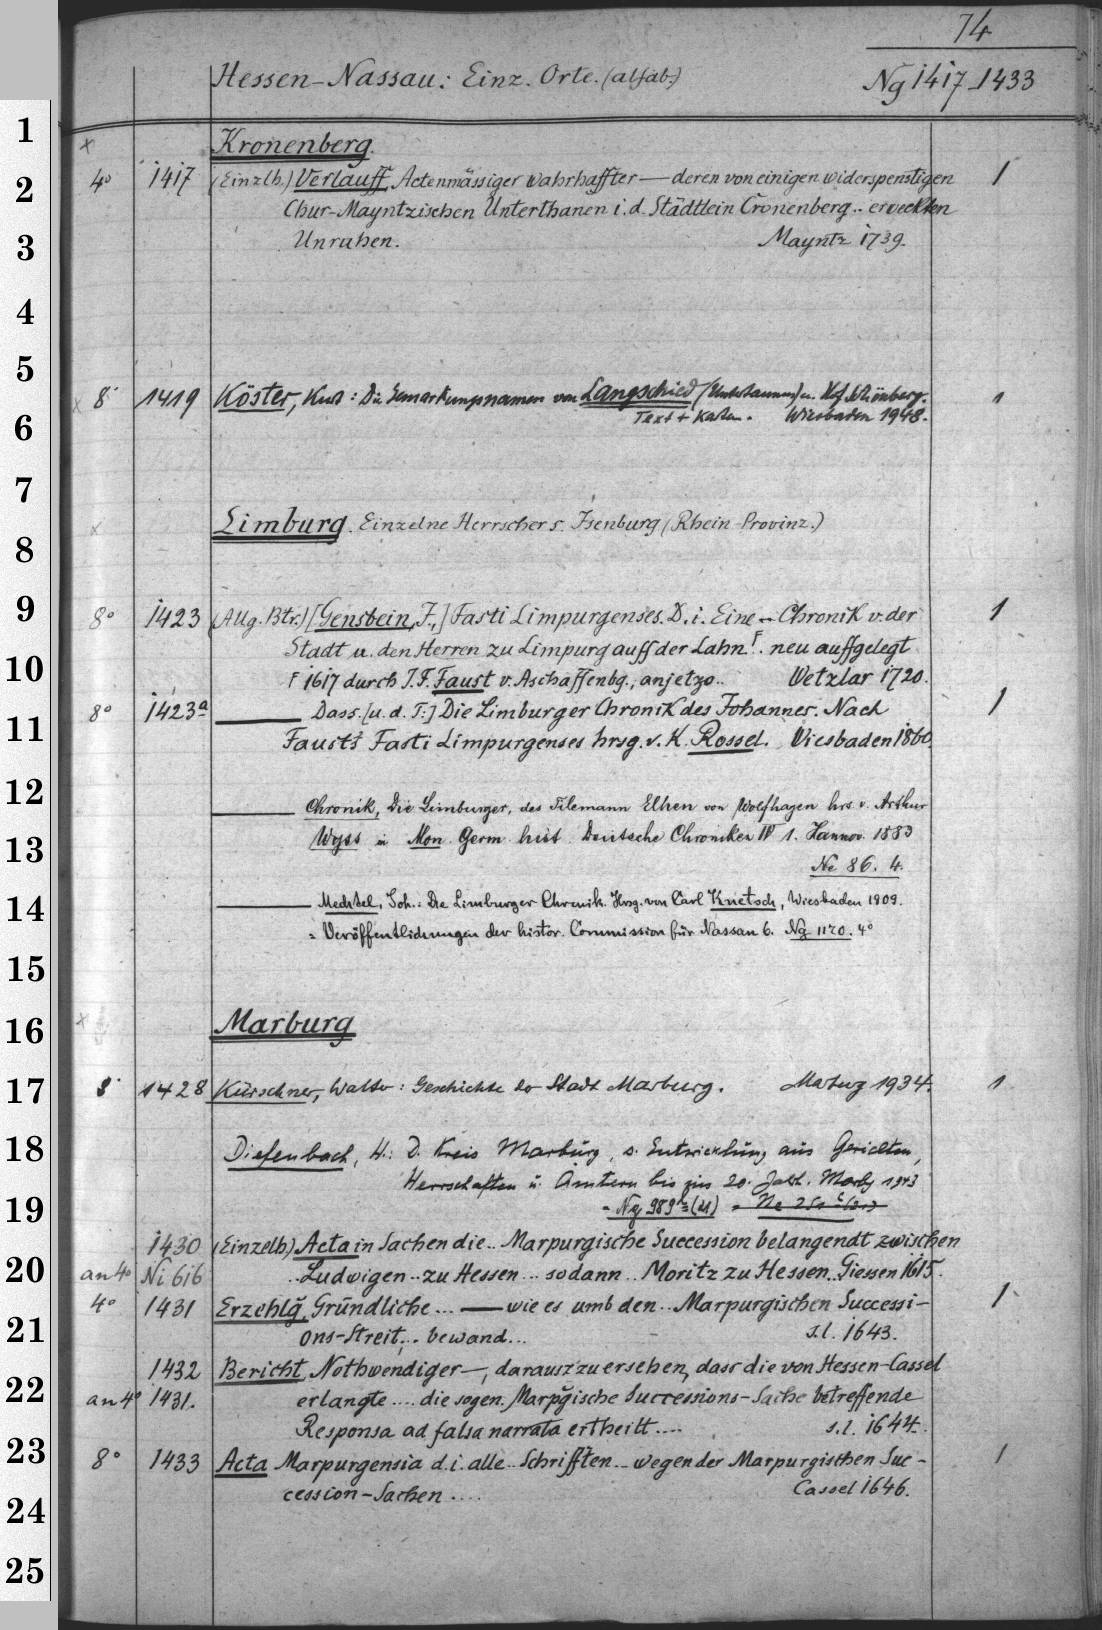 74
Hessen-Nassau: Einz. Orte. (alfab.)
Ng 1417-1433
1
x Kronenberg.
2
4° 1417 (Einzlh.) Verlauff, Actenmässiger wahrhaffter — deren von einigen widerspenstigen 1
Chur-Mayntzischen Unterthanen i. d. Städtlein Cronenberg .. erweckten
3
Unruhen. Mayntz 1739.
4
5
x 8° 1419 Köster, Kurt: Die Gemarkungsnamen von Langschied (Untertaunus) u. Hof Schönberg. 1
6
Text + Karten. Wiesbaden 1948.
7
x Limburg. Einzelne Herrscher s. Isenburg (Rhein-Provinz.)
8
9
8° 1423 (Allg. Btr.) [Gensbein, J.,] Fasti Limpurgenses. D. i. Eine .. Chronik v. der 1
Stadt u. den Herren zu Limpurg auff der Lahn.┌. neu auffgelegt
10
┌ 1617 durch J. F. Faust v. Aschaffenbg., anjetzo .. Wetzlar 1720.
8° 1423a — Dass. [u. d. T:] Die Limburger Chronik des Johannes. Nach 1
11
Faust's Fasti Limpurgenses hrsg. v. K. Rossel. Wiesbaden 1860.
12
— Chronik, Die Limburger, des Tilemann Elhen von Wolfhagen hrs. v. Arthur
13
Wyss in Mon. Germ. hist. Deutsche Chroniken IV 1. Hannov. 1883
Ne 86. 4.
14
— Mechtel, Joh.: Die Limburger Chronik. Hrsg. von Carl Knetsch, Wiesbaden 1909.
= Veröffentlichungen der histor. Commission für Nassau 6. Ng 1170. 4°
15
16
x Marburg
17
8° 1428 Kürschner, Walter: Geschichte der Stadt Marburg. Marburg 1934. 1
18
Diefenbach, H.: D. Kreis Marburg, s. Entwicklung aus Gerichten,
Herrschaften u. Ämtern bis ins 20. Jahrh. Marbg 1943
19
= Ng 989 (21) = Ne
1430 (Einzelh.) Acta in Sachen die .. Marpurgische Succession belangendt zwischen
20
an 4° Ni 616 .. Ludwigen .. zu Hessen ... sodann .. Moritz zu Hessen .. Giessen 1615.
4° 1431 Erzehlg̃, Gründliche ... — wie es umb den .. Marpurgischen Successi- 1
21
ons-Streit ... bewand ... s.l. 1643.
1432 Bericht, Nothwendiger —, darausz zu ersehen, dass die von Hessen-Cassel
22
an 4° 1431. erlangte .... die sogen. Marpg̃ische Successions-Sache betreffende
Responsa ad falsa narrata ertheilt .... s.l. 1644.
23
8° 1433 Acta Marpurgensia d. i. alle .. Schrifften .. wegen der Marpurgischen Suc- 1
24
cession-Sachen .... Cassel 1646.
25